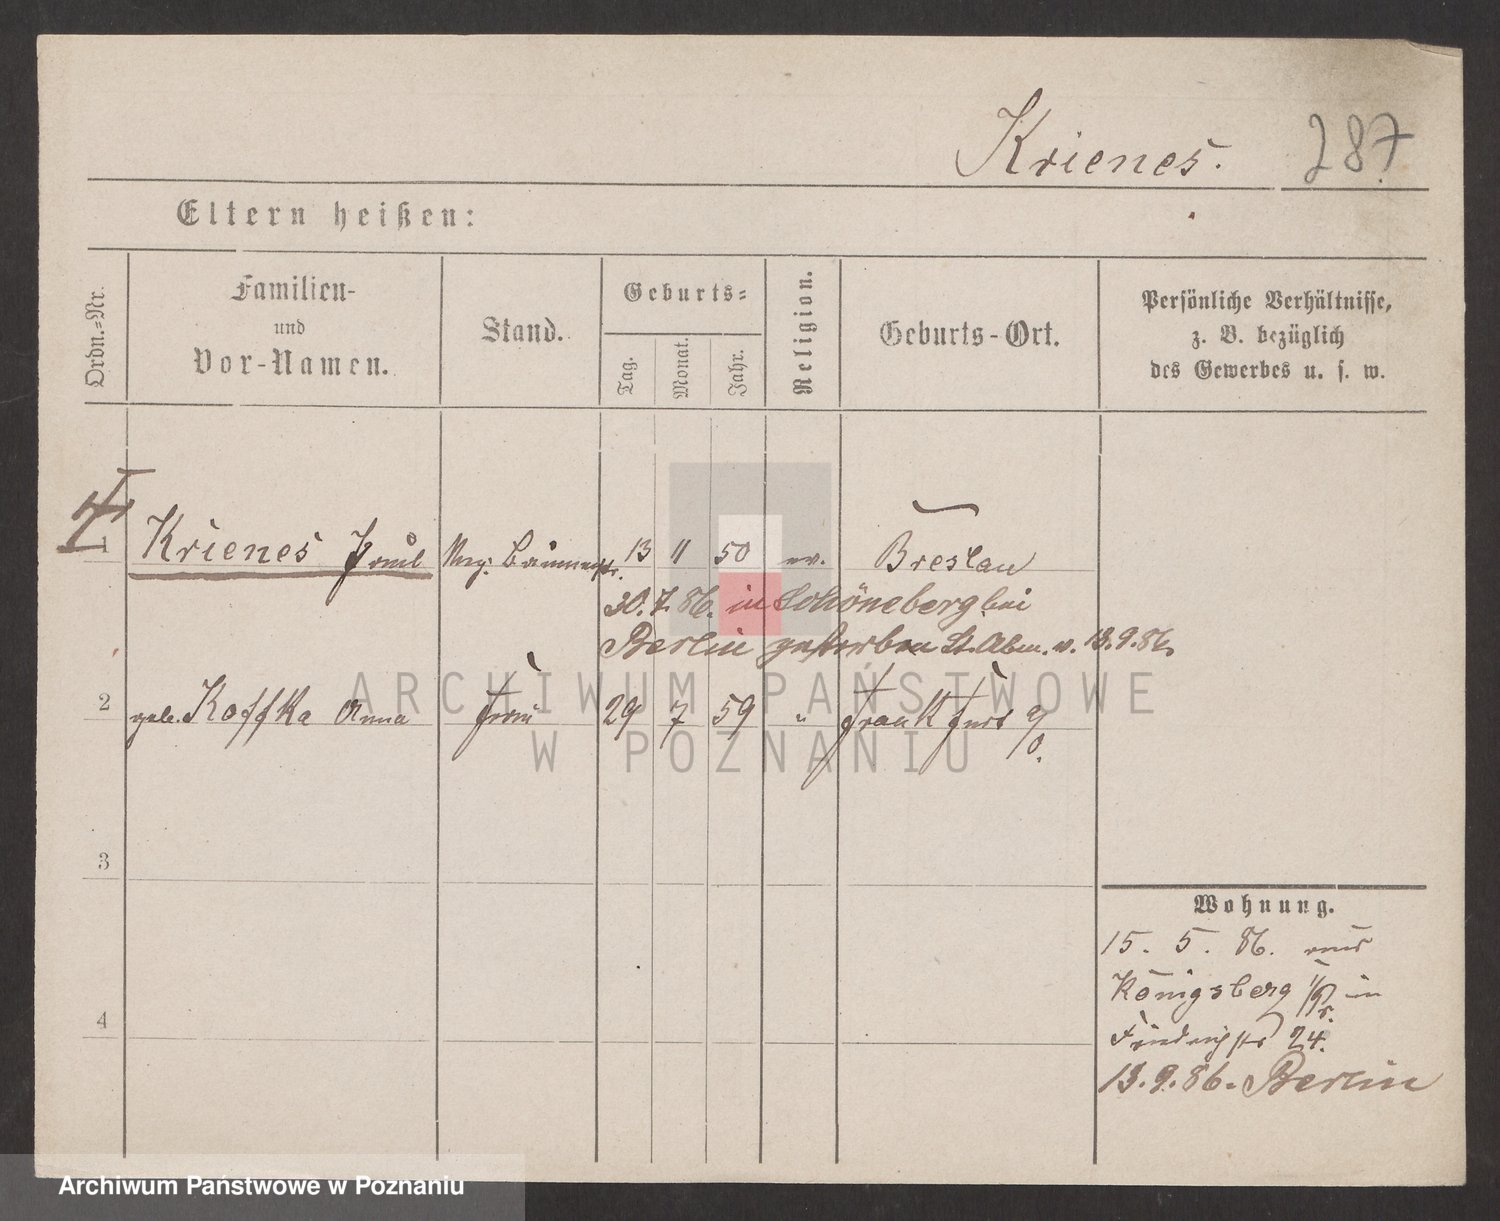 Krienes. 287
Eltern heißen:
Ordn.=Nr.
Familien-
und
Vor-Namen.
Stand.
Geburts=
Tag.
Monat.
Jahr.
Religion.
Geburts-Ort.
Persönliche Verhältnisse,
z. B. bezüglich
des Gewerbes u. s. w.
1 Krienes Paul Reg. Baumeister. 13 11 50 ev. Breslau
30. 7. 86. in Schöneberg bei
Berlin gestorben St. Abm. v. 13. 9. 86.
2 geb. Koffka Anna Frau 29 7 59 " Frankfurt a/O.
3
4
Wohnung.
15. 5. 86. aus
Königsberg i/Pr. in
Friedrichstr 24.
13. 9. 86. Berlin
ARCHIWUM PAŃSTWOWE
W POZNANIU
Archiwum Państwowe w Poznaniu